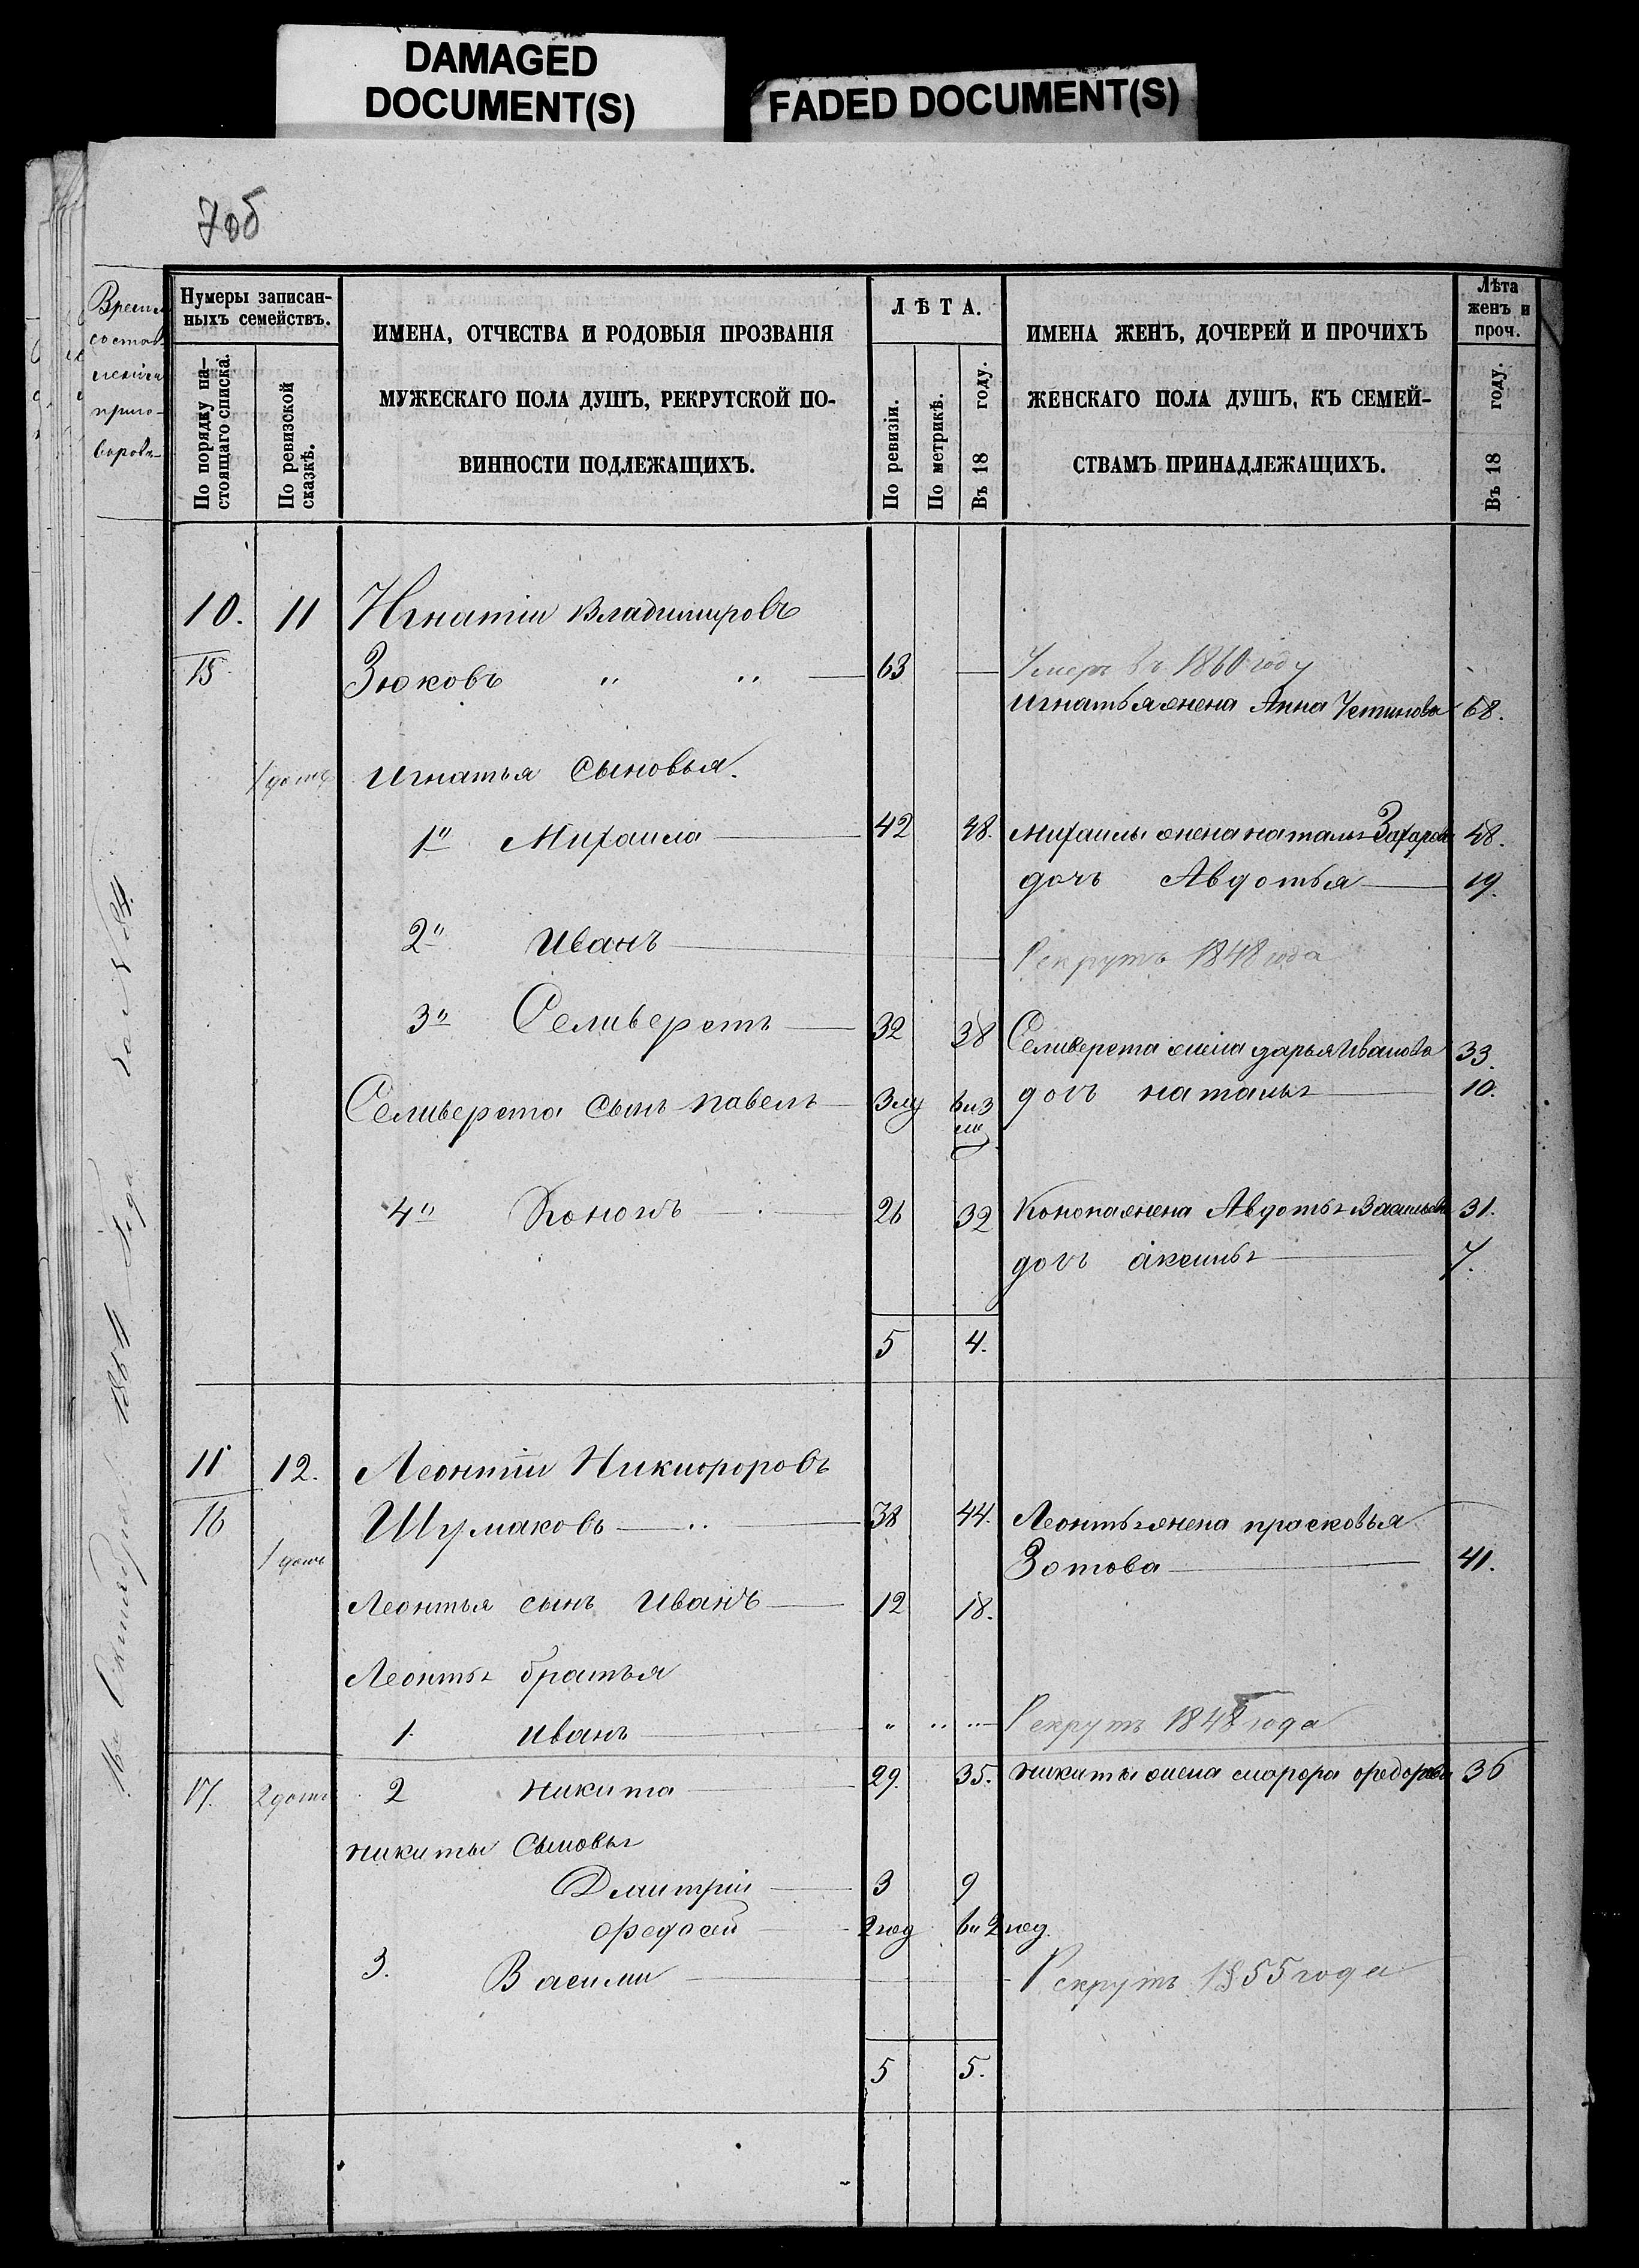 DAMAGED
DOCUMENT(S)
FADED DOCUMENT(S)
7об
Время
состав-
ленія
приго-
воровъ
Нумеры записан-
ныхъ семействъ.
По порядку на-
стоящаго списка.
По ревизской
сказкѣ.
ИМЕНА, ОТЧЕСТВА И РОДОВЫЯ ПРОЗВАНІЯ
МУЖЕСКАГО ПОЛА ДУШЪ, РЕКРУТСКОЙ ПО-
ВИННОСТИ ПОДЛЕЖАЩИХЪ.
ЛѢТА.
По ревизіи.
По метрикѣ.
Въ 18 году.
ИМЕНА ЖЕНЪ, ДОЧЕРЕЙ И ПРОЧИХЪ
ЖЕНСКАГО ПОЛА ДУШЪ, КЪ СЕМЕЙ-
СТВАМЪ ПРИНАДЛЕЖАЩИХЪ.
Лѣта
женъ и
проч.
Въ 18 году.
10. 11 Игнатіи Владимировъ
15 Зюковъ " " — 63 — Умеръ въ 1860 году
Игнатья жена Анна Устинова 68.
Игнатья Сыновья.
1й Михаила — 42 48. Михаилы жена наталья Захарова 48.
дочь Авдотья — 19.
2й Иванъ — Рекрутъ 1848 года
3й Селиверстъ — 32 38 Селиверста жена дарья Иванова 33.
Селиверста Сынъ павелъ — 3 му 6 и 3 ми дочь наталья — 10.
4й Кононъ — 26 32 Конона жена Авдотья Васильева 31.
дочь аксинья — 7.
5 4.
11 12. Леонтіи Никифоровъ
16 Шумаковъ — 38 44. Леонтья жена прасковья
Зотова — 41.
Леонтья сынъ Иванъ — 12 18.
Леонтья братья
1. Иванъ — " " " — Рекрутъ 1848 года
17. 2 2 Никита 29. 35. никиты жена федорова 36
никиты Сыновья
Дмитрій — 3 9
федосей — 2 год 6 и 2 год.
3. Васили — Рекрутъ 1855 года
5 5.
16 Октября 1864 года За № 84.